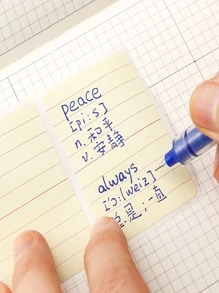 peace
[pi:s]
n. 和平
v. 安静
always
['ɔ:lweiz]
总是;一直